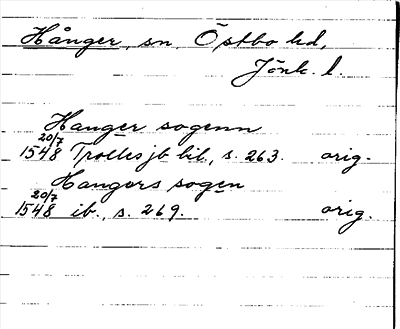 Hånger, sn, Östbo hd,
Jönk. l.
Hanger sogenn
1548 20/7 Trolles jb bil., s. 263. orig.
Hangers sogen
1548 20/7 ib., s. 269. orig.